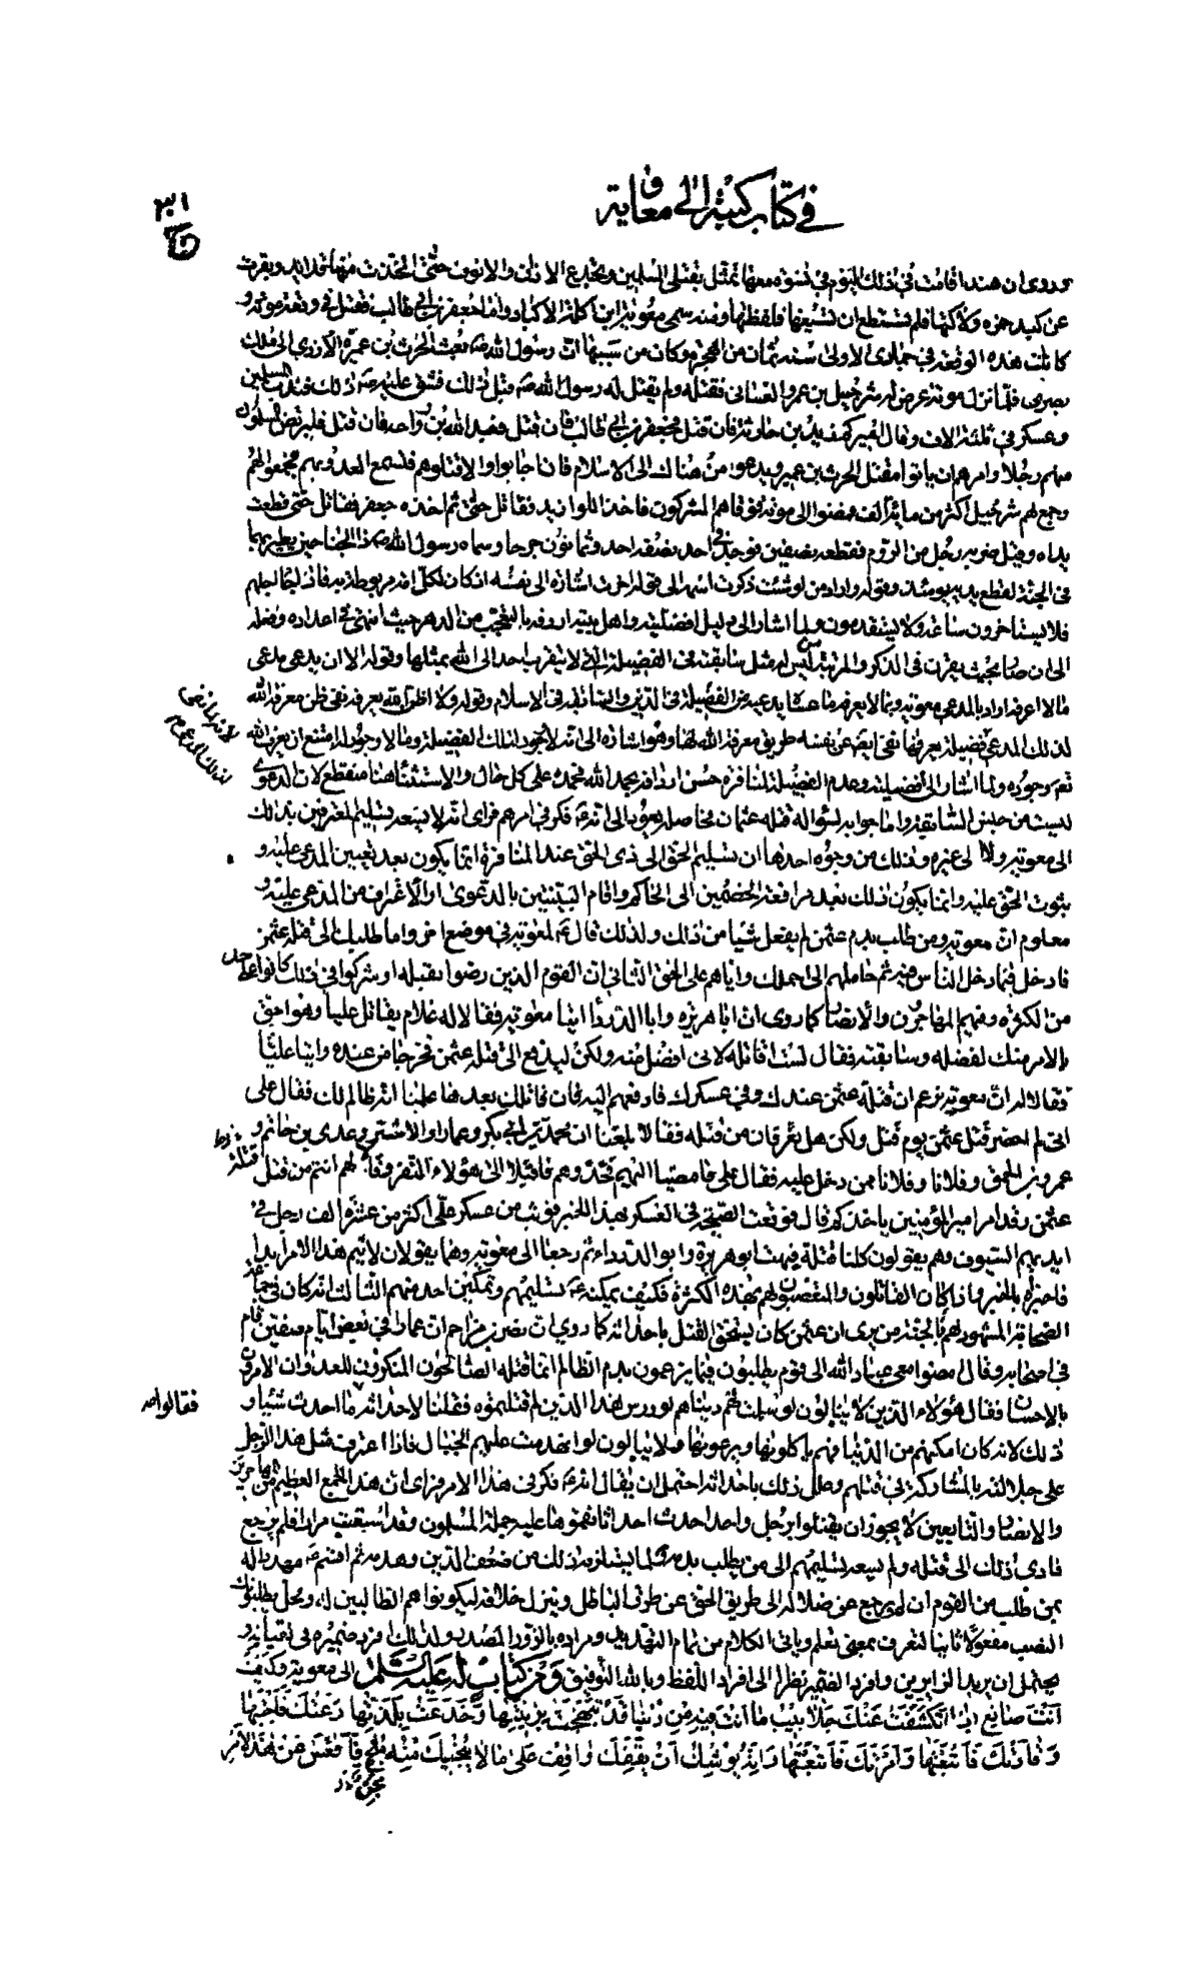 في كتاب كتبه الى معاوية
وروى ان هندا قامت في ذلك اليوم في نسوة معها تمثل بقتلى المسلمين وتجدع الاذان والانوف حتى اتخذت منها قلائد وبقرت
عن كبد حمزه ولاكتها فلم تستطع ان تسيغها فلفظتها ومنه سمى معوية ابن اكلة الاكباد واما جعفر بن ابي طالب فقتل في وقعة موته و
كانت هذه الوقعة في جمادى الاولى سنه ثمان من الهجرة وكان من سببها ان رسول الله صه بعث الحرث بن عميرة الازدي الى ملك
بصرى فلما نزل موته عرض له شرحبيل بن عمرو الغساني فقتله ولم يقتل له رسول الله صه قبل ذلك فشق عليه صه ذلك فندب المسلمين
وعسكر في ثلثة الاف وقال امير كم زيد بن حارثة فان قتل فجعفر بن ابي طالب فان قتل فعبد الله بن رواحه فان قتل فليرتض المسلمون
منهم رجلا وامرهم ان ياتوا مقتل الحرث بن عمير ويدعوا من هناك الى الاسلام فان اجابوا والا قتلوهم فسمع العدو بهم فجمعوا لهم
وجمع لهم شرحبيل اكثر من ماية الف فمضوا الى موته فوقاهم المشركون فاخذ اللوا زيد فقاتل حتى ثم اخذه جعفر فقاتل حتى قطعت
يداه وقيل ضربه رجل من الروم فقطعه بنصفين فوجد في احد نصفيه احد وثمانون جرحا وسماه رسول الله صه ذا الجناحين يطير بهما
في الجنة لقطع يديه يومئذ وقوله واراد من لو شئت ذكرت اسمه الى قوله اخرت اشارة الى نفسه اذ كان لكل اجل مربوط به فاذا جاء اجلهم
فلا يستاخرون ساعة ولا يستقدمون ولما اشار الى دليل افضليته واهل بيته اردفه بالتعجب من الدهر حيث انتهى في اعداده وفعله
الى ان صار بحيث يقرن في الذكر والمرتبة من ليس له مثل سابقته في الفضيلة التي لا يتقرب احد الى الله بمثلها وقوله الا ان يدعى مدعى
مالا اعرفه اراد بالمدعى معويه وبما لا يعرفه ما عساه يدعيه من الفضيلة في الدين والسابقة في الاسلام وقوله ولا اظن الله يعرفه نفى ظن معرفة الله
لذلك المدعى فضيلة يعرفها نفى ايض عن نفسه طريق معرفة الله لها وهو اشارة الى انه لا يجود لتلك الفضيلة وما لا وجود له امتنع ان يعرف الله
تعم وجوده ولما اشار الى افضيلته وعدم الفضيلة لمنافره حسن اردافه بحمد الله فحمده على كل حال والاستثناء هنا منقطع لان الدعوى
ليست من جنس السابقة واما جوابه لسؤاله قتله عثمان فحاصله يعود الى انه ع فكر في امرهم فراى انه لا يسعه تسليم المعترفين بذلك
الى معوية ولا الى غيره وذلك من وجوه احدها ان تسليم الحق الى ذى الحق عند المنافرة انما يكون بعد تعيين المدعى عليه و
ثبوت الحق عليه وانما يكون ذلك بعد مرافعة الخصمين الى الحاكم واقام البينتين بالدعوى او الاعتراف من المدعى عليه و
معلوم ان معويه ومن طلب بدم عثمن لم يفعل شيئا من ذلك ولذلك قال ع لمعويه في موضع اخر واما طلبك الى قتلة عثمن
فادخل فيما دخل الناس فيه ثم حاملهم الى احملك واياهم على الحق الثاني ان القوم الذين رضوا بقتله او شركوا في ذلك كانوا على حد
من الكثرة وفيهم المهاجرون والانصار كما روى ان ابا هريره وابا الدرداء اتيا معويه فقالا له علام يقاتل عليا وهو احق
بالامر منك لفضله وسابقته فقال لست اقاتله لاني افضل منه ولكن ليدفع الى قتلة عثمن فخرجا من عنده واتيا عليا
فقالا له ان معويه يزعم ان قتلة عثمن عندك وفي عسكرك فادفعهم اليه فان قاتلك بعدها علمنا انه ظالم لك فقال على
اني لم احضر قتل عثمن يوم قتل ولكن هل تعرفان من قتله فقالا بلغنا ان محمد بن ابي بكر وعمارا والاشتر وعدى بن حاتم و
عمرو بن الحمق وفلانا وفلانا ممن دخل عليه فقال على فامضيا اليهم فخذوهم فاقبلا الى هؤلاء النفر وقالا لهم انتم من قتل
عثمن وقد امر امير المؤمنين باخذكم قال فوقعت الصيحة في العسكر بهذا الخبر فوثب من عسكر على اكثر من عشرة الف رجل في
ايديهم السيوف وهم يقولون كلنا قتلة فبهت ابو هريرة وابو الدرداء ثم رجعا الى معويه وهما يقولان لا يتم هذا الامر ابدا
فاخبراه بالخبر واذا كان القاتلون والمتعصبون لهم بهذه الكثرة فكيف يمكنه ع تسليمهم وتمكين احد منهم الثالث انه كان في جماعة
الصحابة المشهود لهم بالجنة من يرى ان عثمن كان يستحق القتل باحداثه كما روي ان نصر بن مزاحم ان عمارا في بعض ايام صفين قام
في اصحابه وقال امضوا معى عباد الله الى قوم يطلبون فيما يزعمون بدم الظالم انما قتله الصالحون المنكرون للعدوان الامرون
بالاحسان فقال هؤلاء الذين لا يبالون لو سلمت لهم دنياهم لو درس هذا الدين لم قتلتموه فقلنا لاحداثه ما احدث شيئا و
ذلك لانه كان امكنهم من الدنيا فهم ياكلونها ويرعونها ولا يبالون لو انهدمت عليهم الجبال فاذا اعترف مثل هذا الرجل
على جلالته بالمشاركة في قتلهم وعلل ذلك باحداثه احتمل ان يقال انه ع فكر في هذا الامر فراى ان هذا الجمع العظيم من المهاجرين
والانصار والتابعين لا يجوز ان يقتلوا برجل واحد احدث احداثا نقموها عليه جملة المسلمون وقد استعتب مرارا فلم يرجع
فادى ذلك الى قتله ولم يسعه تسليمهم الى من يطلب بدمه لما يستلزمه ذلك من ضعف الدين وهدمه ثم اقسم ع مهددا له
بمن طلب من القوم ان لم يرجع عن ضلاله الى طريق الحق عن طرف الباطل وينزل خلافه ليكونوا هم الطالبين له ومحل يطلبونك
النصب مفعولا ثانيا لتعرف بمعنى تعلم وباقي الكلام من تمام التهديد ومراده بالزور المصدر ولذلك افرد ضميره في لقيانه و
يحتمل ان يريد الزايرين وافرد الضمير نظرا الى افراد اللفظ وبالله التوفيق ومن كتاب له عليه السلام الى معوية وكيف
انت صانع اذا انكشفت عنك جلابيب ما انت فيه من دنيا قد تبهجت بزينتها وخدعت بلذتها دعتك فاجبتها
وقادتك فاتبعتها وامرتك فاتبعتها وانه يوشك ان يقفك واقف على مالا ينجيك منه فاقعس عن هذا الامر
فقالوا